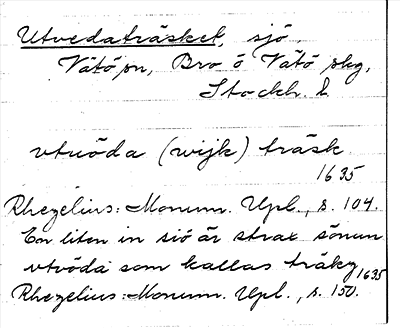 Utvedaträsket, sjö,
Vätö sn, Bro ō Vätö skg,
Stockh. l.
vtuöda (wijk) träsk.
1635
Rhezelius: Monum. Upl., s. 104.
En liten in siö är strax sönun
vtvöda som kallas träky 1635
Rhezelius: Monum. Upl., s. 150.